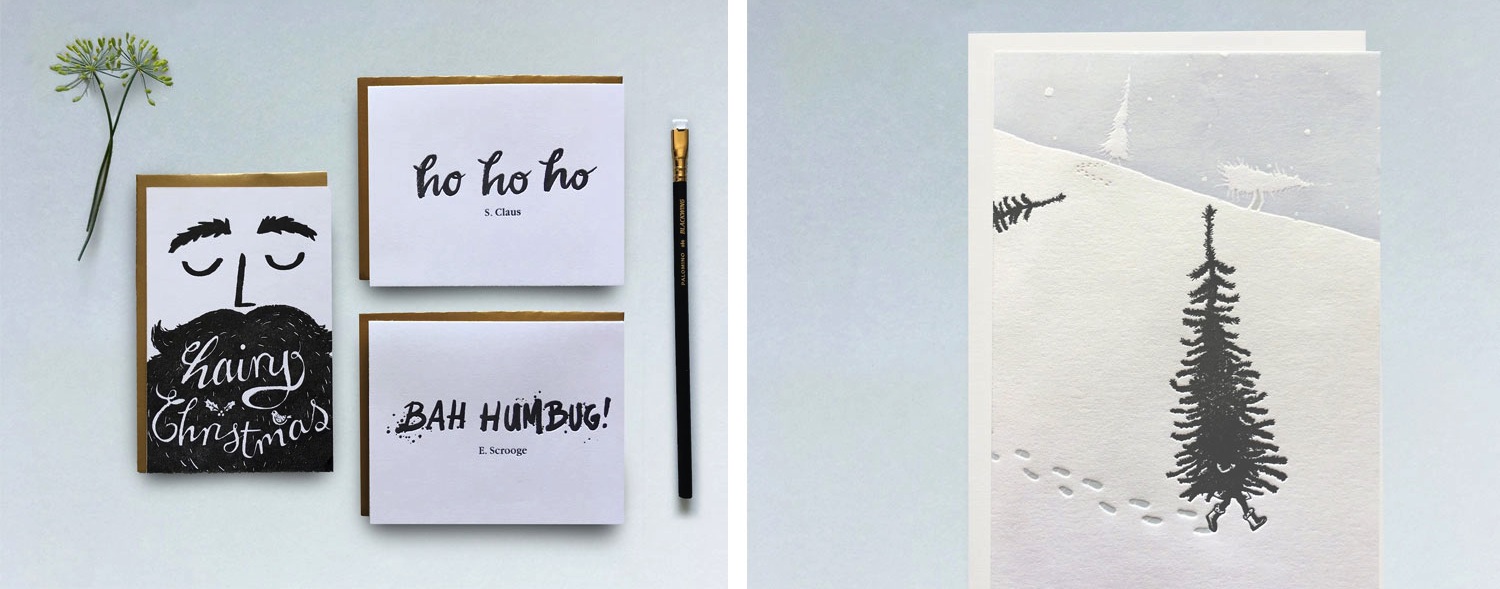 hairy
Christmas
ho ho ho
S. Claus
BAH HUMBUG!
E. Scrooge
PALOMINO BLACKWING